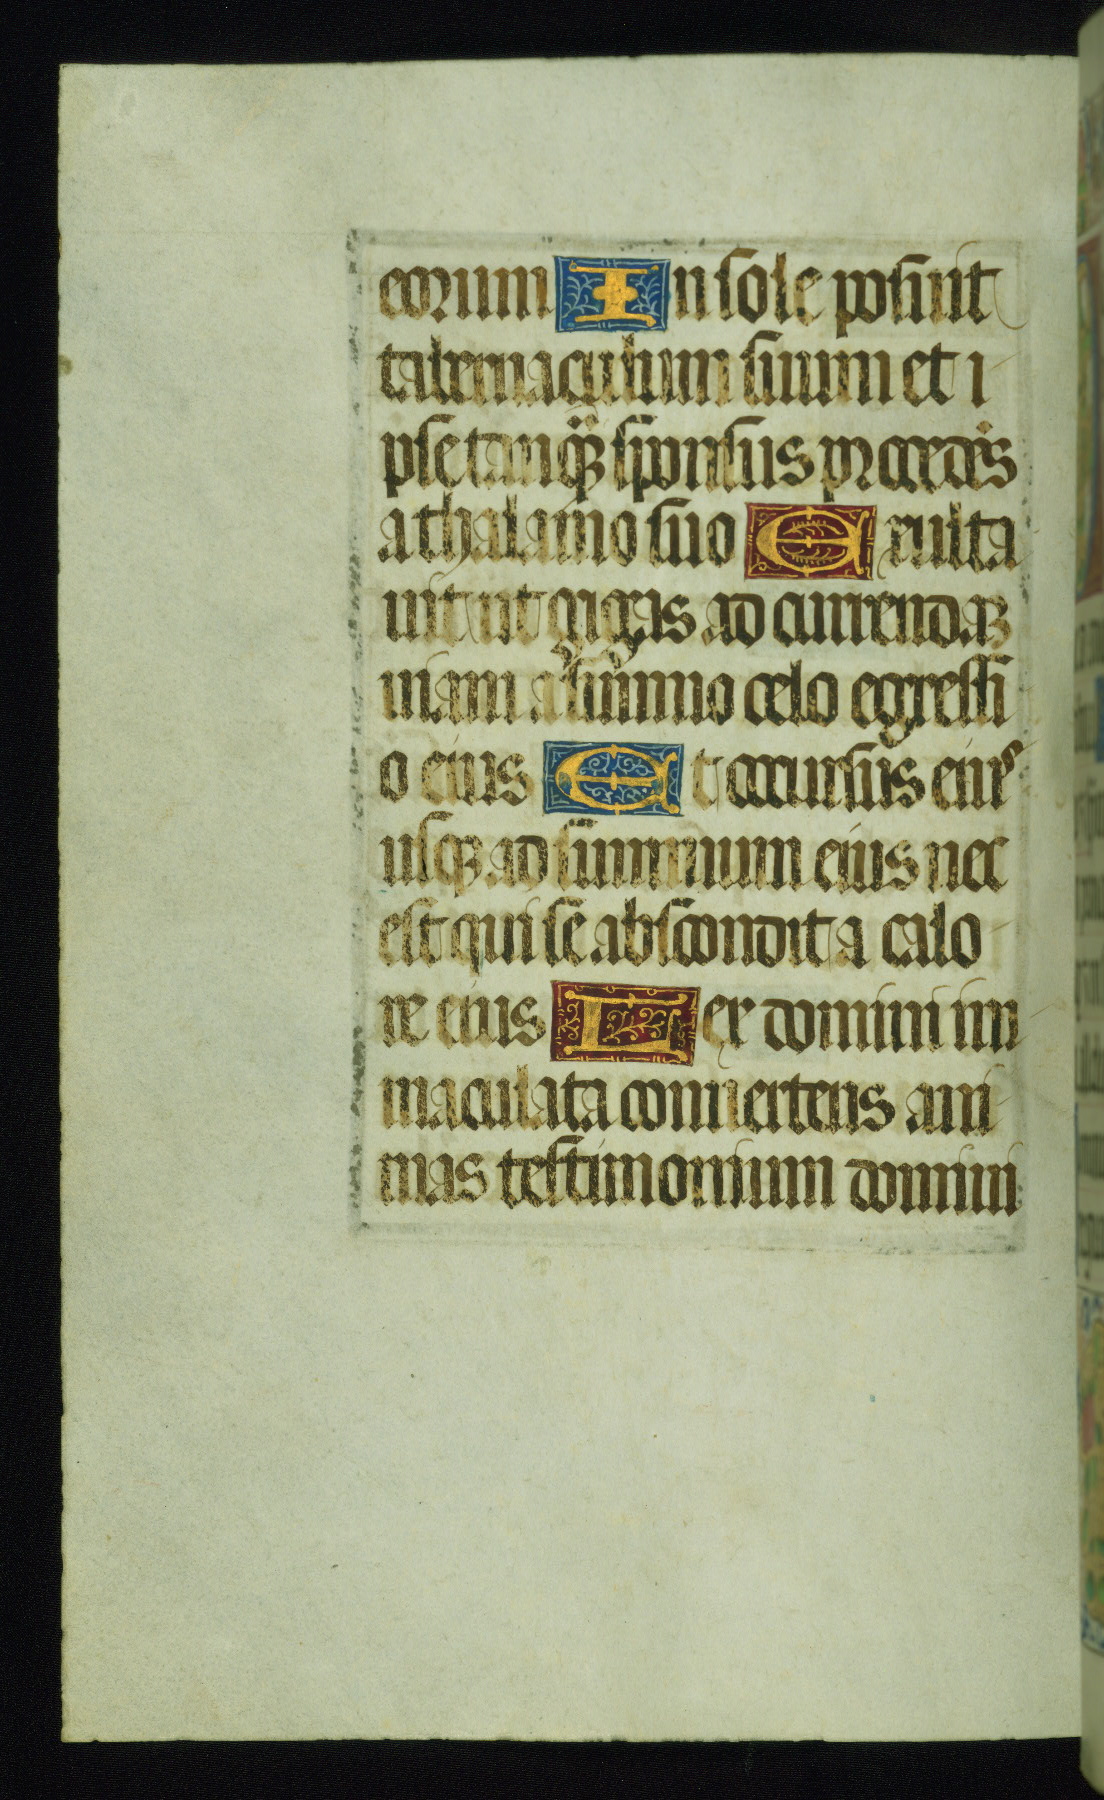 eorum In sole posuit
tabernaculum suum et i
pse tanq̃ꝫ sponsus procedẽs
a thalamo suo Exulta
uit ut gigas ad currendaꝫ
uiam a summo celo egressi
o eius Et occursus eiuꝰ
usqꝫ ad summum eius nec
est qui se abscondit a calo
re eius Lex domini im
maculata conuertens ani
mas testimonium domini